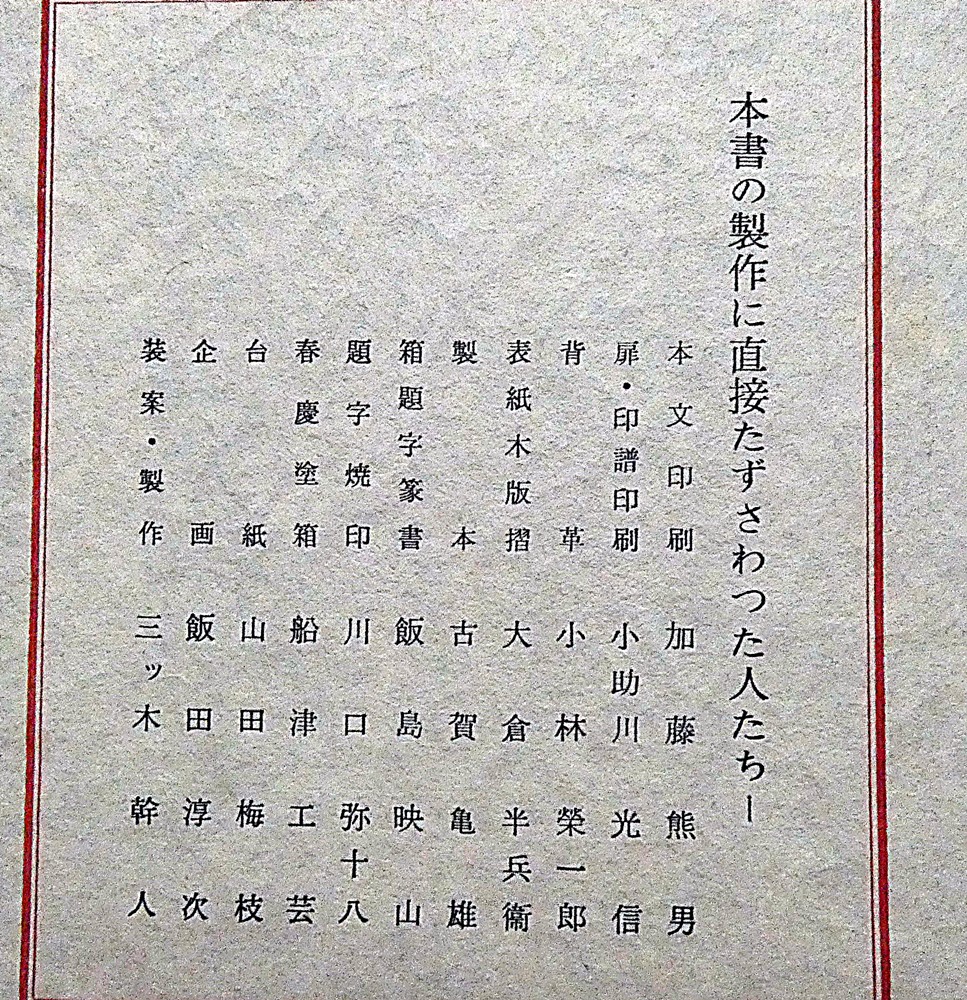 本書の製作に直接たずさわつた人たち―
本文印刷　加藤熊男
扉・印譜印刷　小助川光信
背革　小林榮一郎
表紙木版摺　大倉半兵衞
製本　古賀亀雄
箱題字篆書　飯島映山
題字焼印　川口弥十八
春慶塗箱　船津工芸
台紙　山田梅枝
企画　飯田淳次
装案・製作　三ッ木幹人